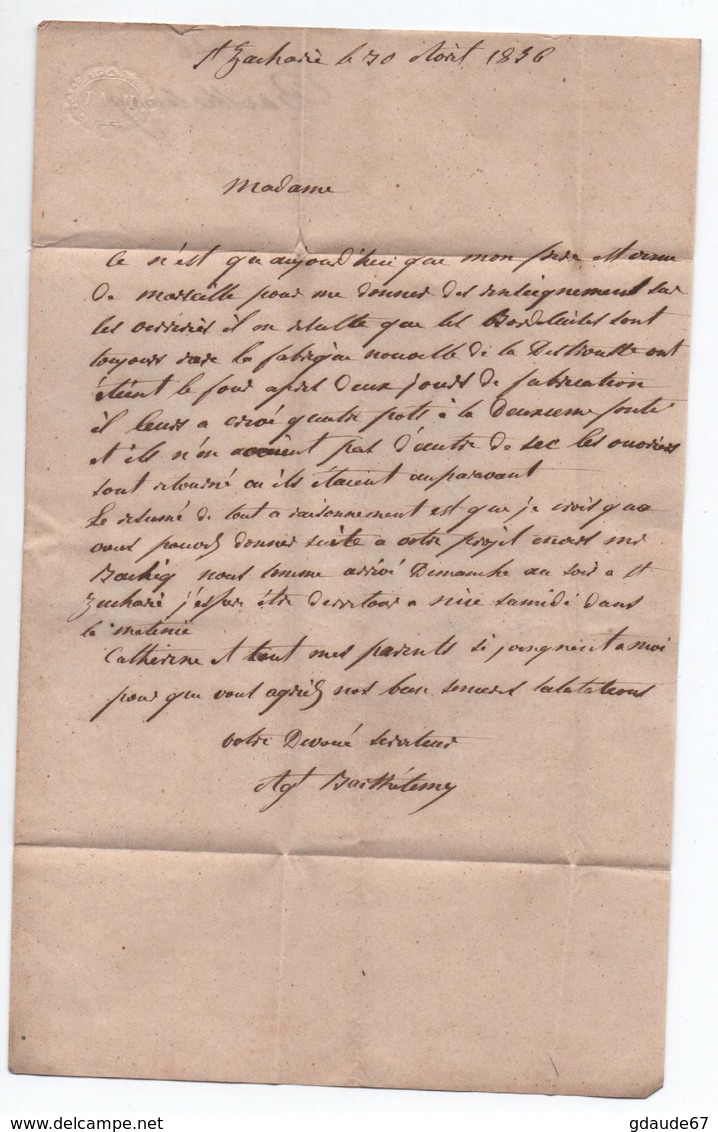 St Zacharie le 30 Août 1856
Madame
Ce n'est qu'aujourd'hui que mon frere est venu
de marseille pour me donner des renseignement sur
les verreries il en resulte que les Bordelaises sont
toujours rare la fabrique nouvelle de la Destrousse ont
éteint le four apres deux jours de fabrication
il leurs a crevé quatre pots à la Deuxieme fonte
et ils n'en avaient pas d'autre de sec les ouvriers
sont retourné ou ils étaient auparavant
Le résumé de tout a raisonnement est que je crois que
vous pouvez donner suite a votre projet envers mr
nous somme arrivé Dimanche au soir a St
Zacharie j'espere être de retour a nice samedi dans
la matinée
Catherine et tout mes parents si joingnent a moi
pour que vous agréez nos bien sinceres salutations
votre Devoué serviteur
Agt Barthélemy
www.delcampe.net
gdaude67